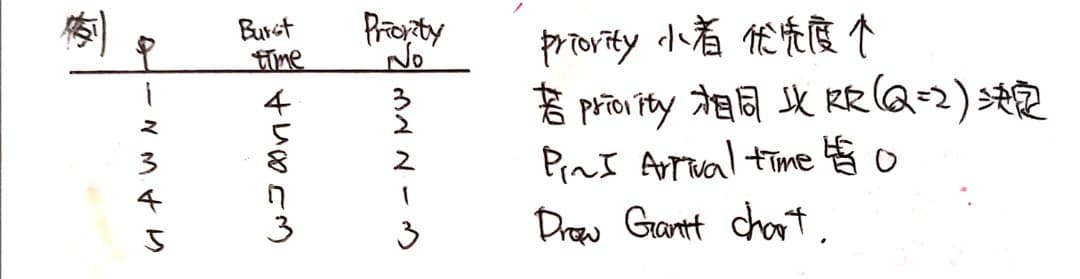 例 P Burst time Priority No
1 4 3
2 5 2
3 8 2
4 7 1
5 3 3
priority 小者 优先度个
若 priority 相同 以 RR(Q=2) 决定
P1~5 Arrival time 皆 0
Draw Gantt chart.